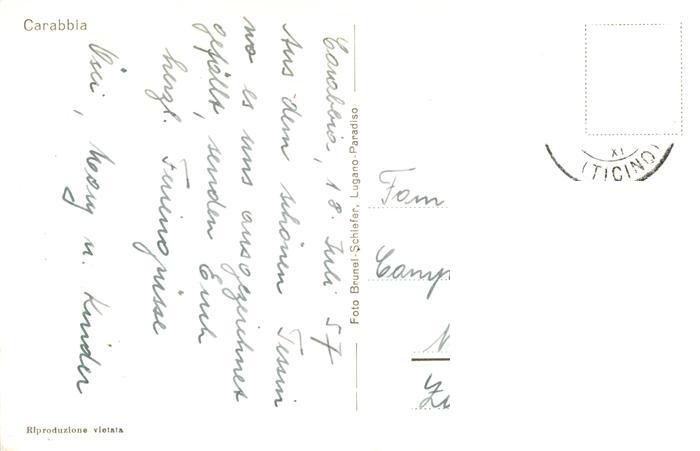 Carabbia
Carabbia, 18. Juli 57
Aus dem schönen Tessin
wo es uns ausgezeichnet
gefällt, senden Euch
herzl. Feriengrüsse
u. Kinder
Foto Brunel-Schiefer, Lugano-Paradiso
XI
(TICINO)
Fam
Riproduzione vietata